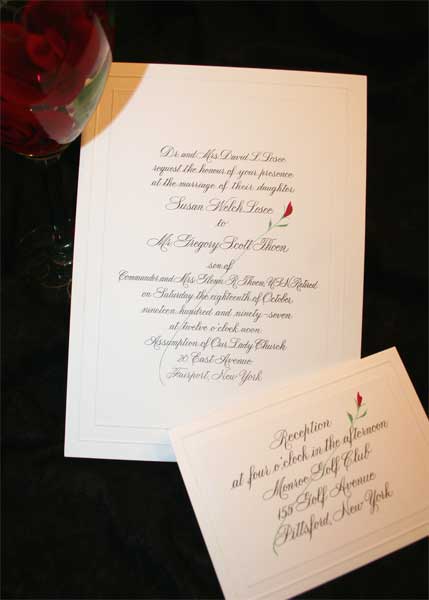 Dr. and Mrs. David L. Losee
request the honour of your presence
at the marriage of their daughter
Susan Welch Losee
to
Mr. Gregory Scott Thoen
son of
Commander and Mrs. Glenn R. Thoen, USN Retired
on Saturday the eighteenth of October
nineteen hundred and ninety-seven
at twelve o'clock noon
Assumption of Our Lady Church
20 East Avenue
Fairport, New York
Reception
at four o'clock in the afternoon
Monroe Golf Club
155 Golf Avenue
Pittsford, New York